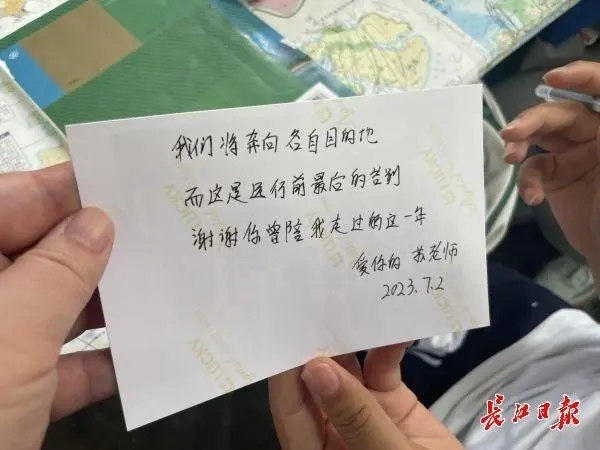 我们将奔向各自目的地
而这是远行前最后的告别
谢谢你曾陪我走过的这一年
爱你的 苏老师
2023.7.2
LUCKY
LUCKY
LUCKY
长江日报